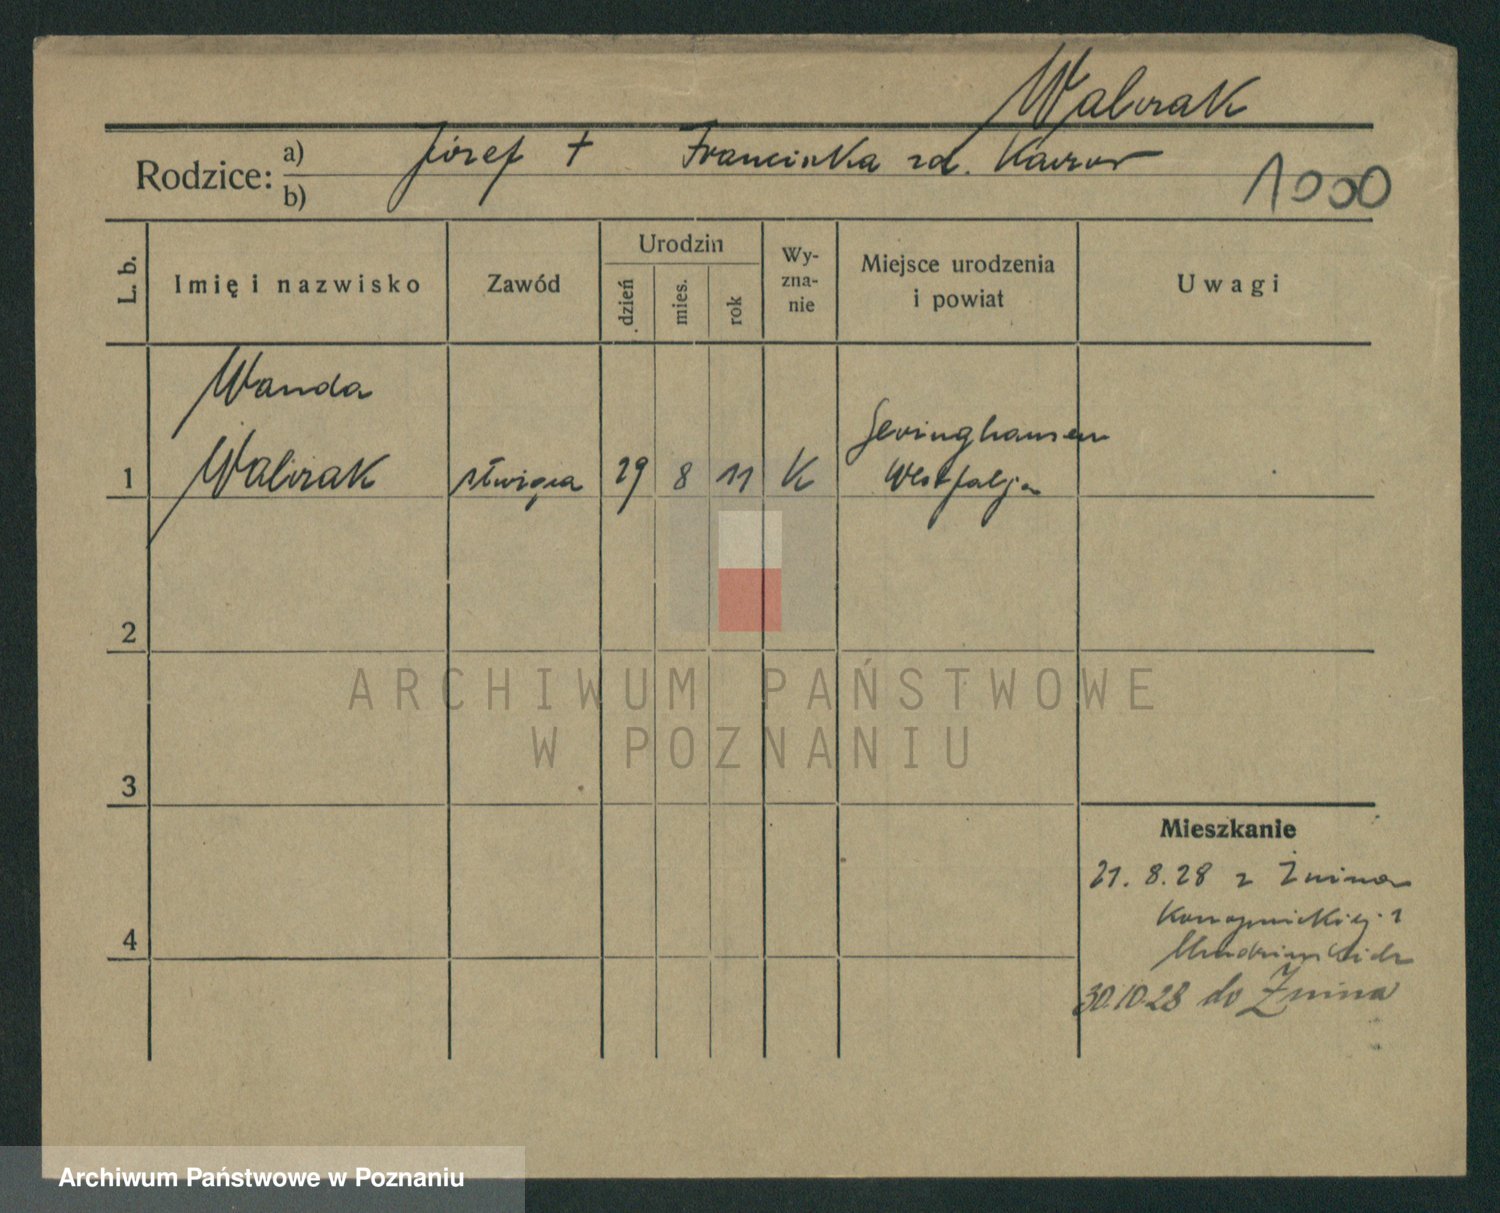 Walczak
Rodzice: a) Józef † Franciszka zd.
b)
1000
L. b.
Imię i nazwisko
Zawód
Urodzin
dzień
mies.
rok
Wy-
zna-
nie
Miejsce urodzenia
i powiat
Uwagi
Wanda
1 Walczak służąca 29 8 11 K Gevinghausen
Westfalja
2
3
4
ARCHIWUM PAŃSTWOWE
W POZNANIU
Mieszkanie
21.8.28 z Żnina
Konopnickiej 1
30.10.28 do Żnina
Archiwum Państwowe w Poznaniu